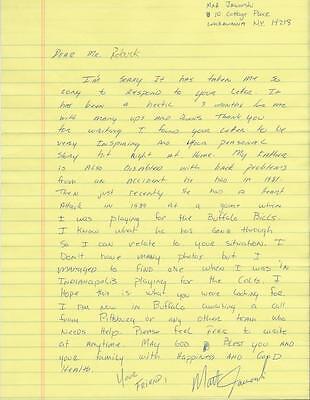 Matt Jaworski
10 Cottage Place
Lackawanna NY. 14218
Dear Mr. Roback
I'm Sorry It has taken me so
long to Respond to your letter. It
has been a hectic 3 months for me
with many ups and downs. Thank you
for writing. I found your letter to be
very Inspiring and your personal
story hit Right at Home. My Father
is Also Disabled with back problems
from an accident he had in 1981.
Then just recently he had a heart
Attack in 1989 at a game when
I was playing for the Buffalo Bills.
I know what he has gone through
So I can relate to your situation. I
Don't have many photos but I
managed to find one when I was in
Indianapolis playing for the Colts. I
Hope this is what you were looking for.
I Am now in Buffalo awaiting a call
from Pittsburg or any other team who
needs Help. Please feel free to write
at Anytime. May God Bless you and
your family with Happiness and Good
Health.
Your Friend!
Matt Jaworski